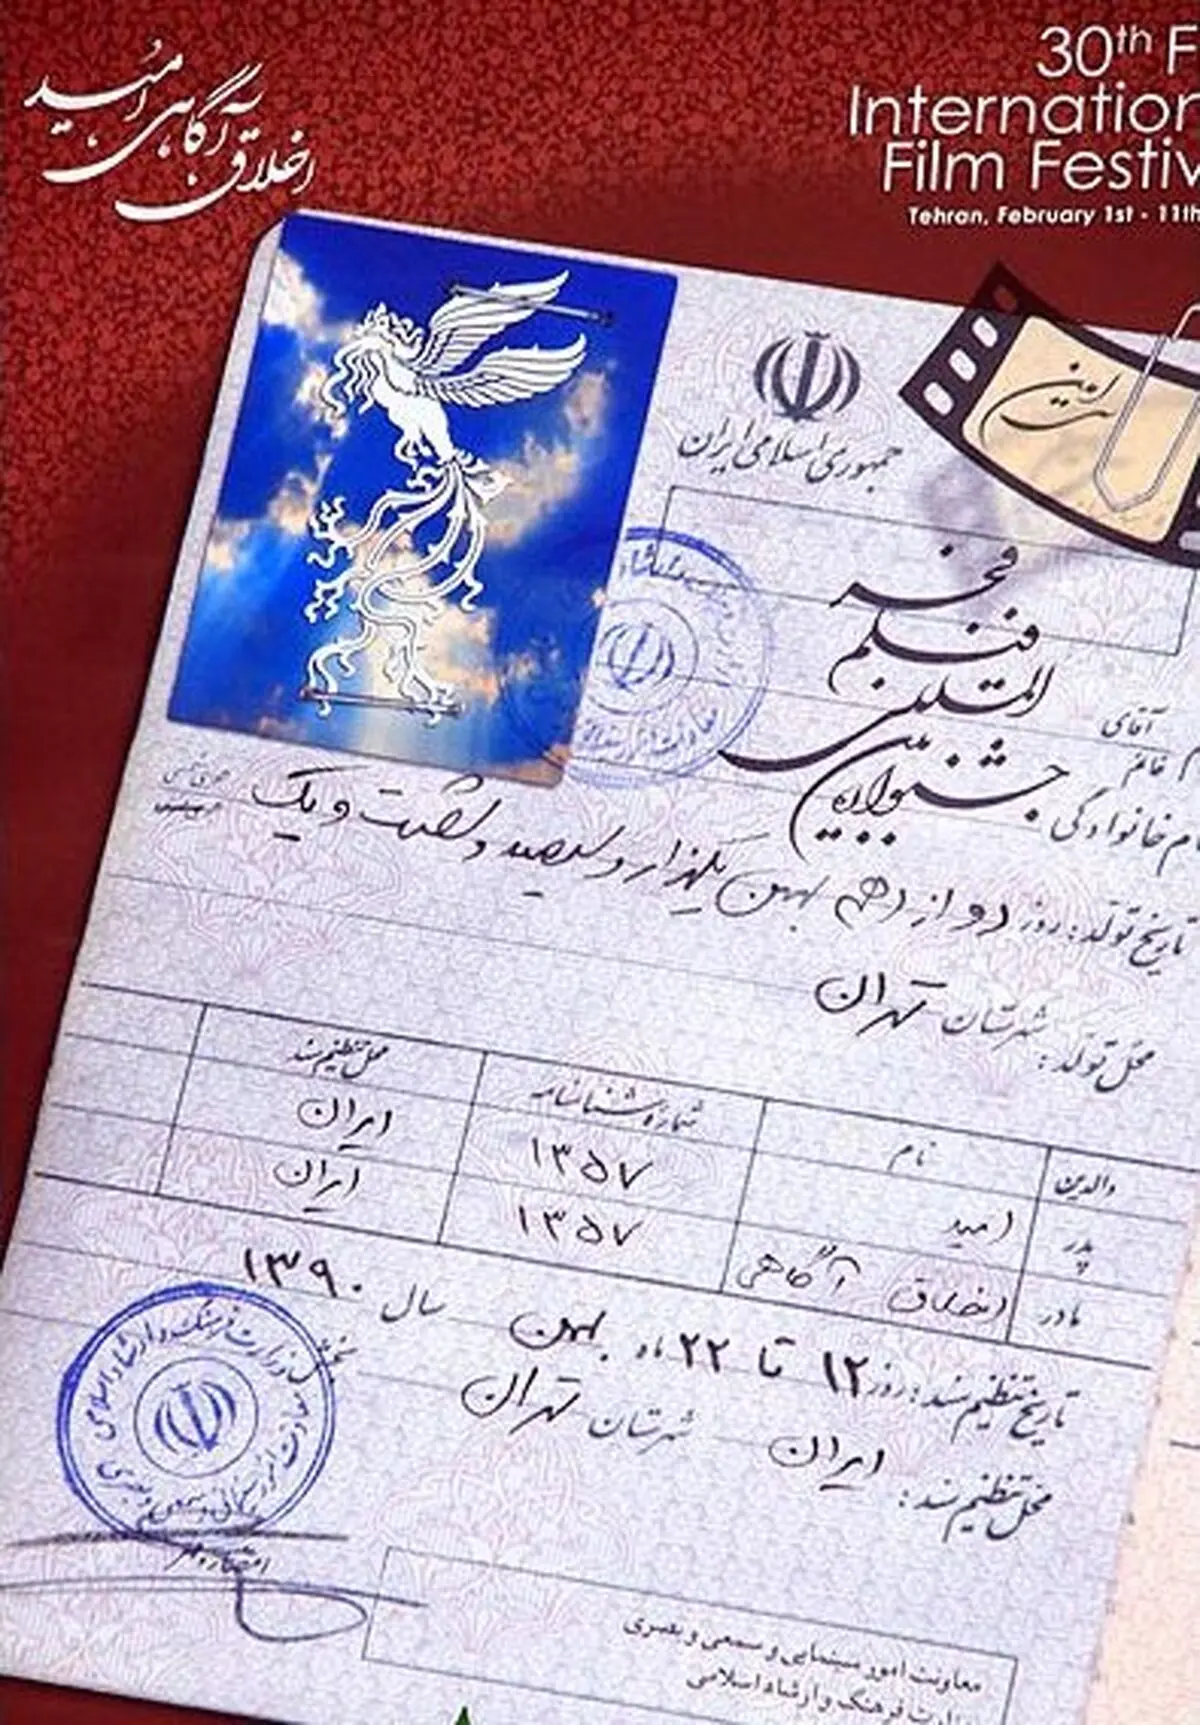 اخلاق آگاهی امید
30th F
Internation
Film Festiv
Tehran, February 1st - 11th
جمهوری اسلامی ایران
جشنواره بین المللی فیلم فجر
آقای
خانم
نام خانوادگی
تاریخ تولد: روز دوازدهم بهمن یکهزار و سیصد و شصت و یک
محل تولد: شهرستان تهران
والدین نام شماره شناسنامه محل تنظیم سند
پدر امید ۱۳۵۷ ایران
مادر اخلاق آگاهی ۱۳۵۷ ایران
تاریخ تنظیم سند: روز ۱۲ تا ۲۲ ماه بهمن سال ۱۳۹۰
محل تنظیم سند: ایران شهرستان تهران
وزارت فرهنگ و ارشاد اسلامی
معاونت امور سینمایی و سمعی و بصری
معاونت امور سینمایی و سمعی و بصری
وزارت فرهنگ و ارشاد اسلامی